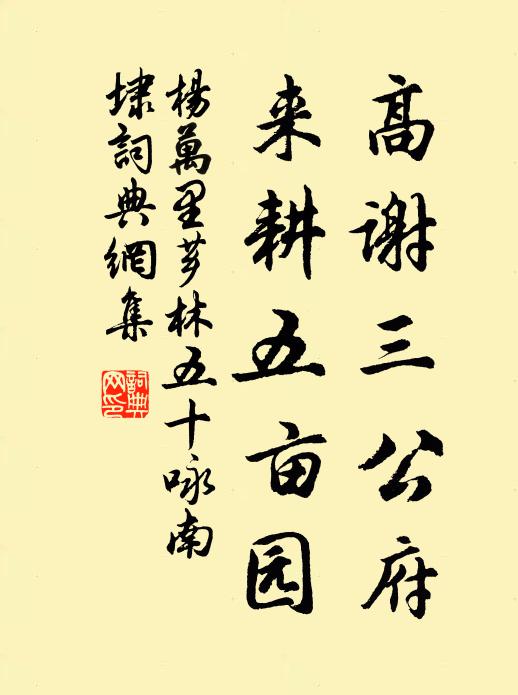 高谢三公府
来耕五亩园
楊萬里芗林五十咏南
埭詞典網集
詞典
网印